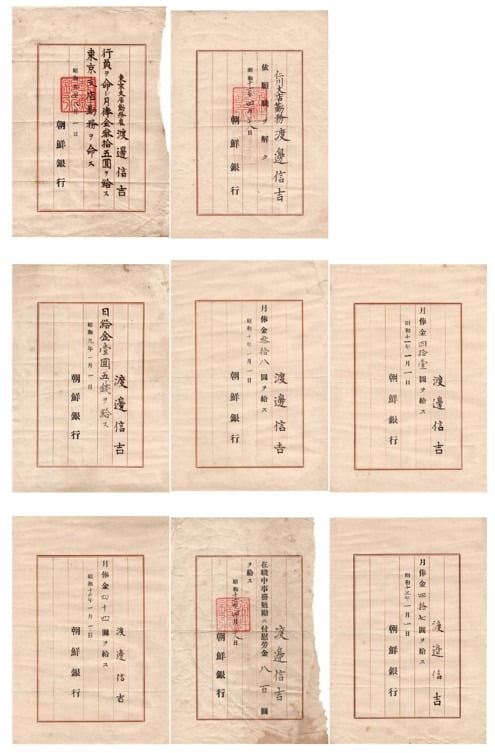 東京支店勤務雇
渡邊信吉
行員ヲ命シ月俸金參拾五圓ヲ給ス
東京支店勤務ヲ命ス
朝鮮銀行
仁川支店勤務
渡邊信吉
依願職ヲ解ク
朝鮮銀行
渡邊信吉
日給金壹圓五錢ヲ給ス
昭和九年一月一日
朝鮮銀行
渡邊信吉
月俸金參拾八圓ヲ給ス
昭和十年一月一日
朝鮮銀行
渡邊信吉
月俸金四拾壹圓ヲ給ス
昭和十一年一月一日
朝鮮銀行
渡邊信吉
月俸金四十四圓ヲ給ス
昭和十二年一月一日
朝鮮銀行
渡邊信吉
在職中事務勉勵ニ付慰勞金八百圓
ヲ給ス
朝鮮銀行
渡邊信吉
月俸金四拾七圓ヲ給ス
昭和十三年一月一日
朝鮮銀行